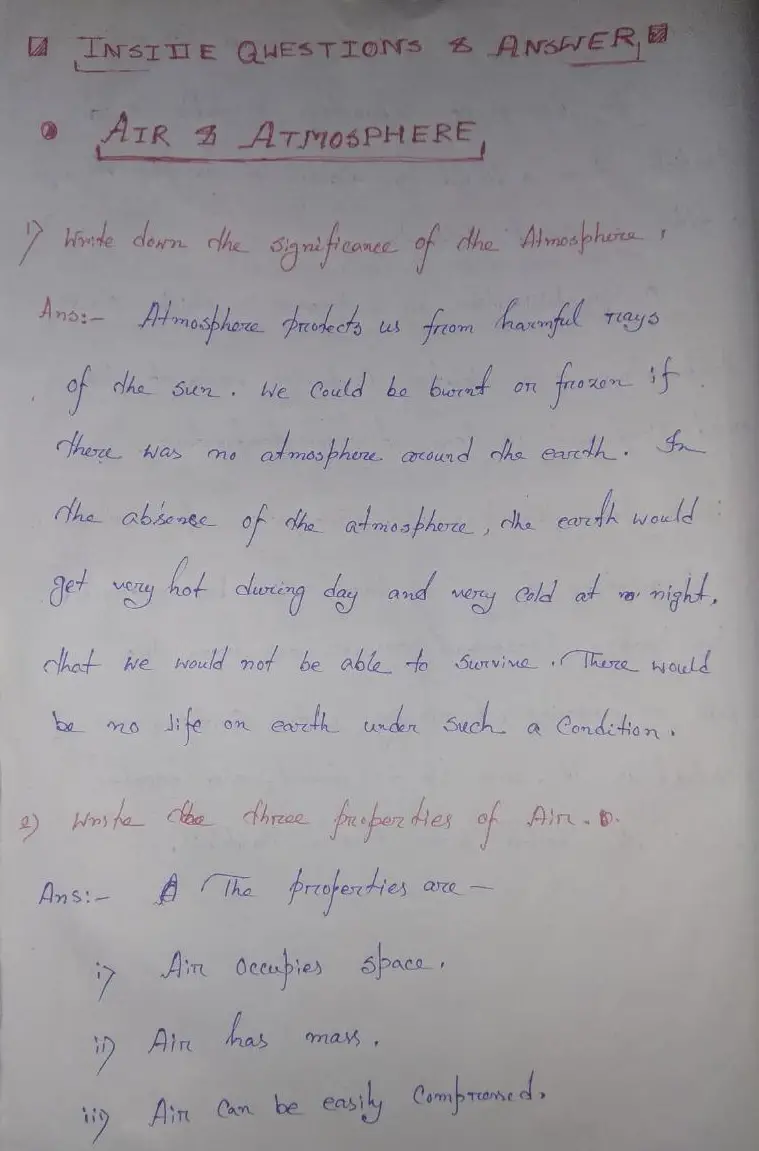 INSIDE QUESTIONS & ANSWER,
AIR & ATMOSPHERE,
1) Write down the significance of the Atmosphere,
Ans:- Atmosphere protects us from harmful rays
of the sun. We Could be burnt or frozen if
there was no atmosphere around the earth. In
the absence of the atmosphere, the earth would
get very hot during day and very cold at night,
that we would not be able to survive. There would
be no life on earth under such a Condition.
2) Write the three properties of Air.
Ans:- The properties are —
i) Air occupies space.
ii) Air has mass.
iii) Air Can be easily Compressed.